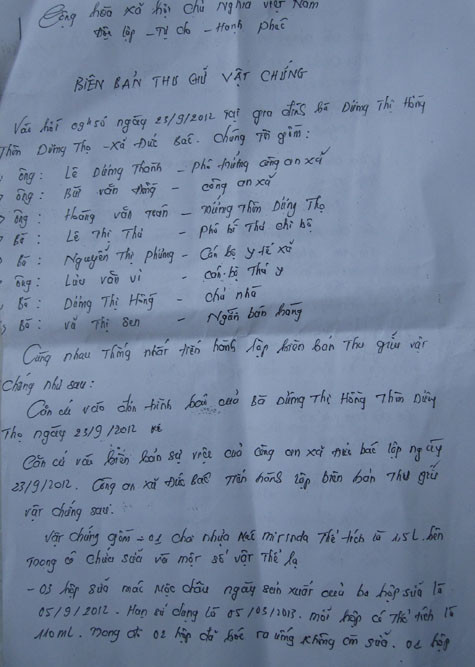 Cộng hòa xã hội chủ nghĩa việt Nam
Độc lập - Tự do - Hạnh phúc
BIÊN BẢN THU GIỮ VẬT CHỨNG
Vào hồi 09h50 ngày 23/9/2012 tại gia đình bà Dương Thị Hồng
Thôn Dương Thọ - xã Đức Bác. Chúng tôi gồm:
ông: Lê Dương Thành - Phó trưởng công an xã
ông: Bùi văn - công an xã
ông: Hoàng văn - Trưởng Thôn Dương Thọ
Bà: Lê Thị Thu - Phó bí Thư chi bộ
Bà: Nguyễn Thị Phương - Cán bộ y tế xã
ông: Lưu văn vi - cán bộ Thú y
Bà: Dương Thị Hồng - chủ nhà
Bà: vũ Thị Sen - Người bán hàng
Cùng nhau Thống nhất tiến hành lập biên bản Thu giữ vật
chứng như sau:
Căn cứ vào đơn trình báo của Bà Dương Thị Hồng Thôn Dương
Thọ ngày 23/9/2012
Căn cứ vào biên bản sự việc của công an xã Đức bác lập ngày
23/9/2012. Công an xã Đức Bác Tiến hành lập biên bản Thu giữ
vật chứng sau.
vật chứng gồm - 01 chai nhựa Mirinda Thể tích là 1,5L. bên
Trong có chứa sữa và một số vật Thể lạ
- 03 hộp sữa mác Mộc Châu ngày sản xuất của ba hộp sữa là
05/9/2012. Hạn sử dụng là 05/03/2013. mỗi hộp có Thể tích là
110ML. Trong đó 02 hộp đã bóc ra uống không còn sữa. 01 hộp